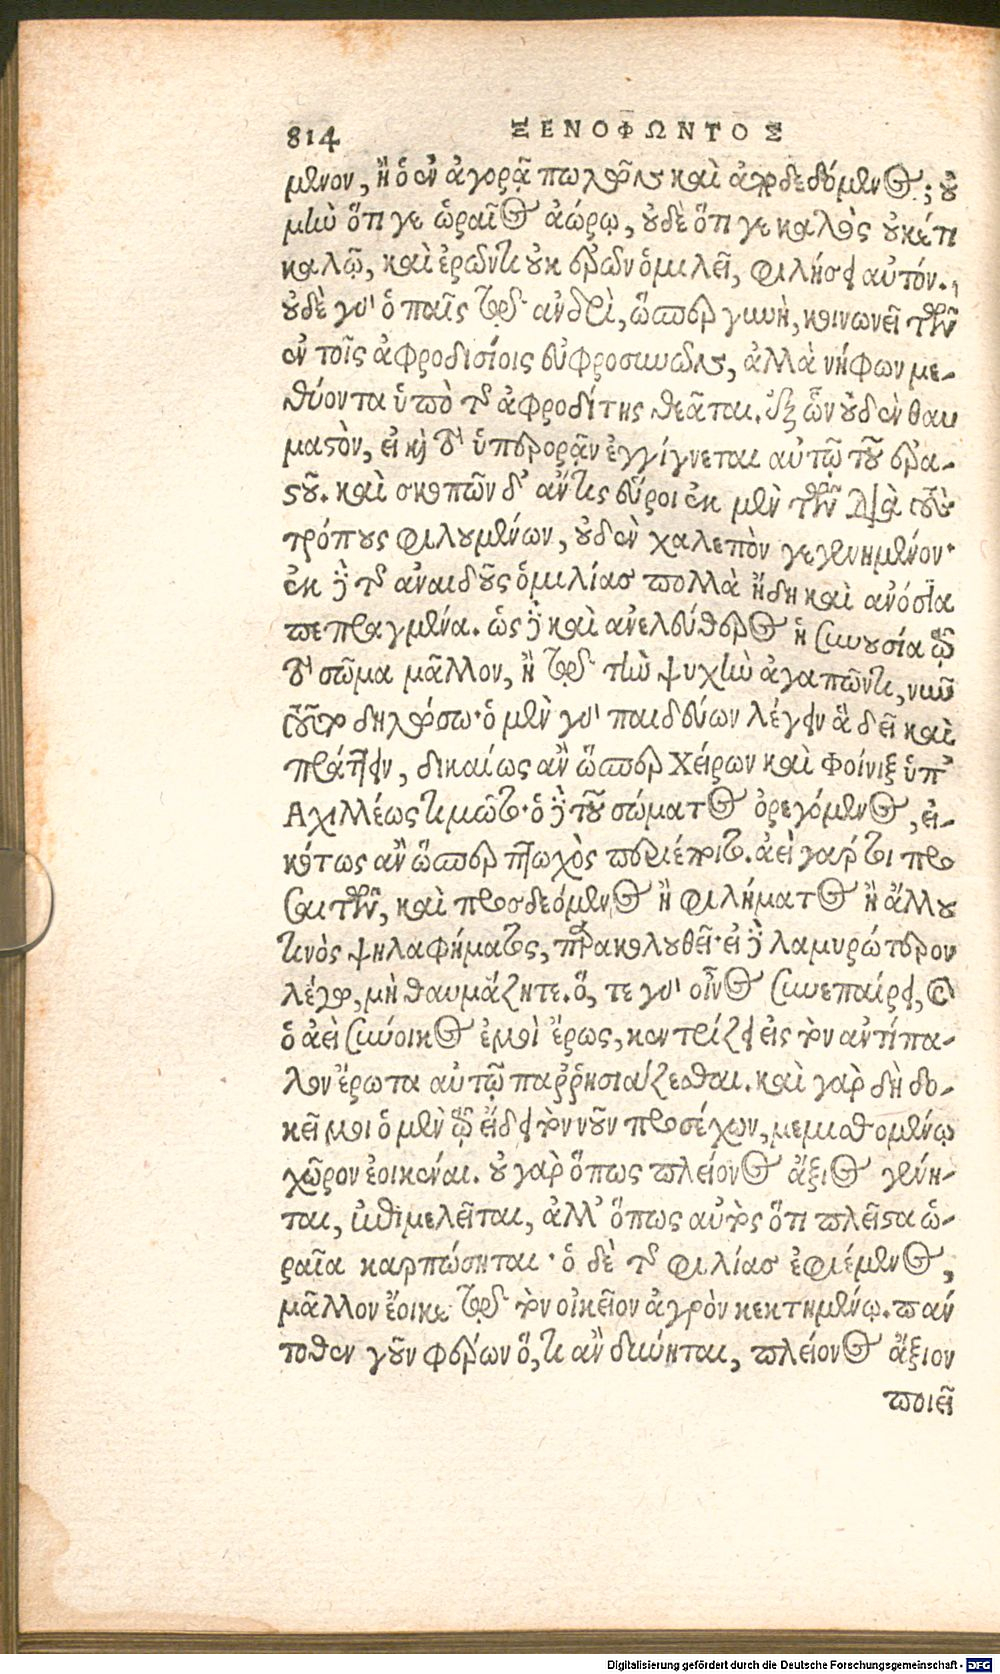 814 ΞΕΝΟΦΩΝΤΟΣ
μενον, ἢ ὁ ἐν ἀγορᾷ πωλῶν καὶ ἀποδεδόμενος; οὐ
μὴν ὅτι γε ὡραῖος ἀώρῳ, οὐδὲ ὅτι γε καλὸς οὐκέτι
καλῷ, καὶ ἐρῶντι οὐκ ἐρῶν ὁμιλεῖ, φιλήσει αὐτόν.
οὐδὲ γὰρ ὁ παῖς τῷ ἀνδρὶ, ὥσπερ γυνὴ, κοινωνεῖ τῶν
ἐν τοῖς ἀφροδισίοις εὐφροσυνῶν, ἀλλὰ νήφων με-
θύοντα ὑπὸ τῆς ἀφροδίτης θεᾶται. ἐξ ὧν οὐδὲν θαυ
μαστὸν, εἰ καὶ τὸ ὑπερορᾶν ἐγγίγνεται αὐτῷ τοῦ ἐρα-
στοῦ. καὶ σκοπῶν δ' ἄν τις εὕροι ἐκ μὲν τῶν διὰ τοὺς
τρόπους φιλουμένων, οὐδὲν χαλεπὸν γεγενημένον·
ἐκ δὲ τῆς ἀναιδοῦς ὁμιλίας πολλὰ ἤδη καὶ ἀνόσια
πεπραγμένα. ὡς δὲ καὶ ἀνελεύθερος ἡ συνουσία τῷ
τὸ σῶμα μᾶλλον, ἢ τῷ τὴν ψυχὴν ἀγαπῶντι, νῦν
τοῦτο δηλώσω· ὁ μὲν γὰρ παιδεύων λέγειν ἃ δεῖ καὶ
πράττειν, δικαίως ἂν ὥσπερ Χείρων καὶ Φοίνιξ ὑπ'
Ἀχιλλέως τιμῷτο· ὁ δὲ τοῦ σώματος ὀρεγόμενος, εἰ-
κότως ἂν ὥσπερ πτωχὸς περιέποιτο. ἀεὶ γάρ τι προ
σαιτῶν, καὶ προσδεόμενος ἢ φιλήματος ἢ ἄλλου
τινὸς ψηλαφήματος, παρακολουθεῖ· εἰ δὲ λαμυρώτερον
λέγω, μὴ θαυμάζητε. ὅ, τε γὰρ οἶνος συνεπαίρει, καὶ
ὁ ἀεὶ σύνοικος ἐμοὶ ἔρως, κεντρίζει εἰς τὸν ἀντίπα-
λον ἔρωτα αὐτῷ παῤῥησιάζεσθαι. καὶ γὰρ δὴ δο-
κεῖ μοι ὁ μὲν τῷ εἴδει τὸν νοῦν προσέχων, μεμισθωμένῳ
χῶρον ἐοικέναι. οὐ γὰρ ὅπως πλείονος ἄξιος γένη-
ται, ἐπιμελεῖται, ἀλλ' ὅπως αὐτὸς ὅτι πλεῖστα ὡ-
ραῖα καρπώσηται· ὁ δὲ τῆς φιλίας ἐφιέμενος,
μᾶλλον ἔοικε τῷ τὸν οἰκεῖον ἀγρὸν κεκτημένῳ. πάν
τοθεν γοῦν φέρων ὅ, τι ἂν δύνηται, πλείονος ἄξιον
ποιεῖ
Digitalisierung gefördert durch die Deutsche Forschungsgemeinschaft - DFG